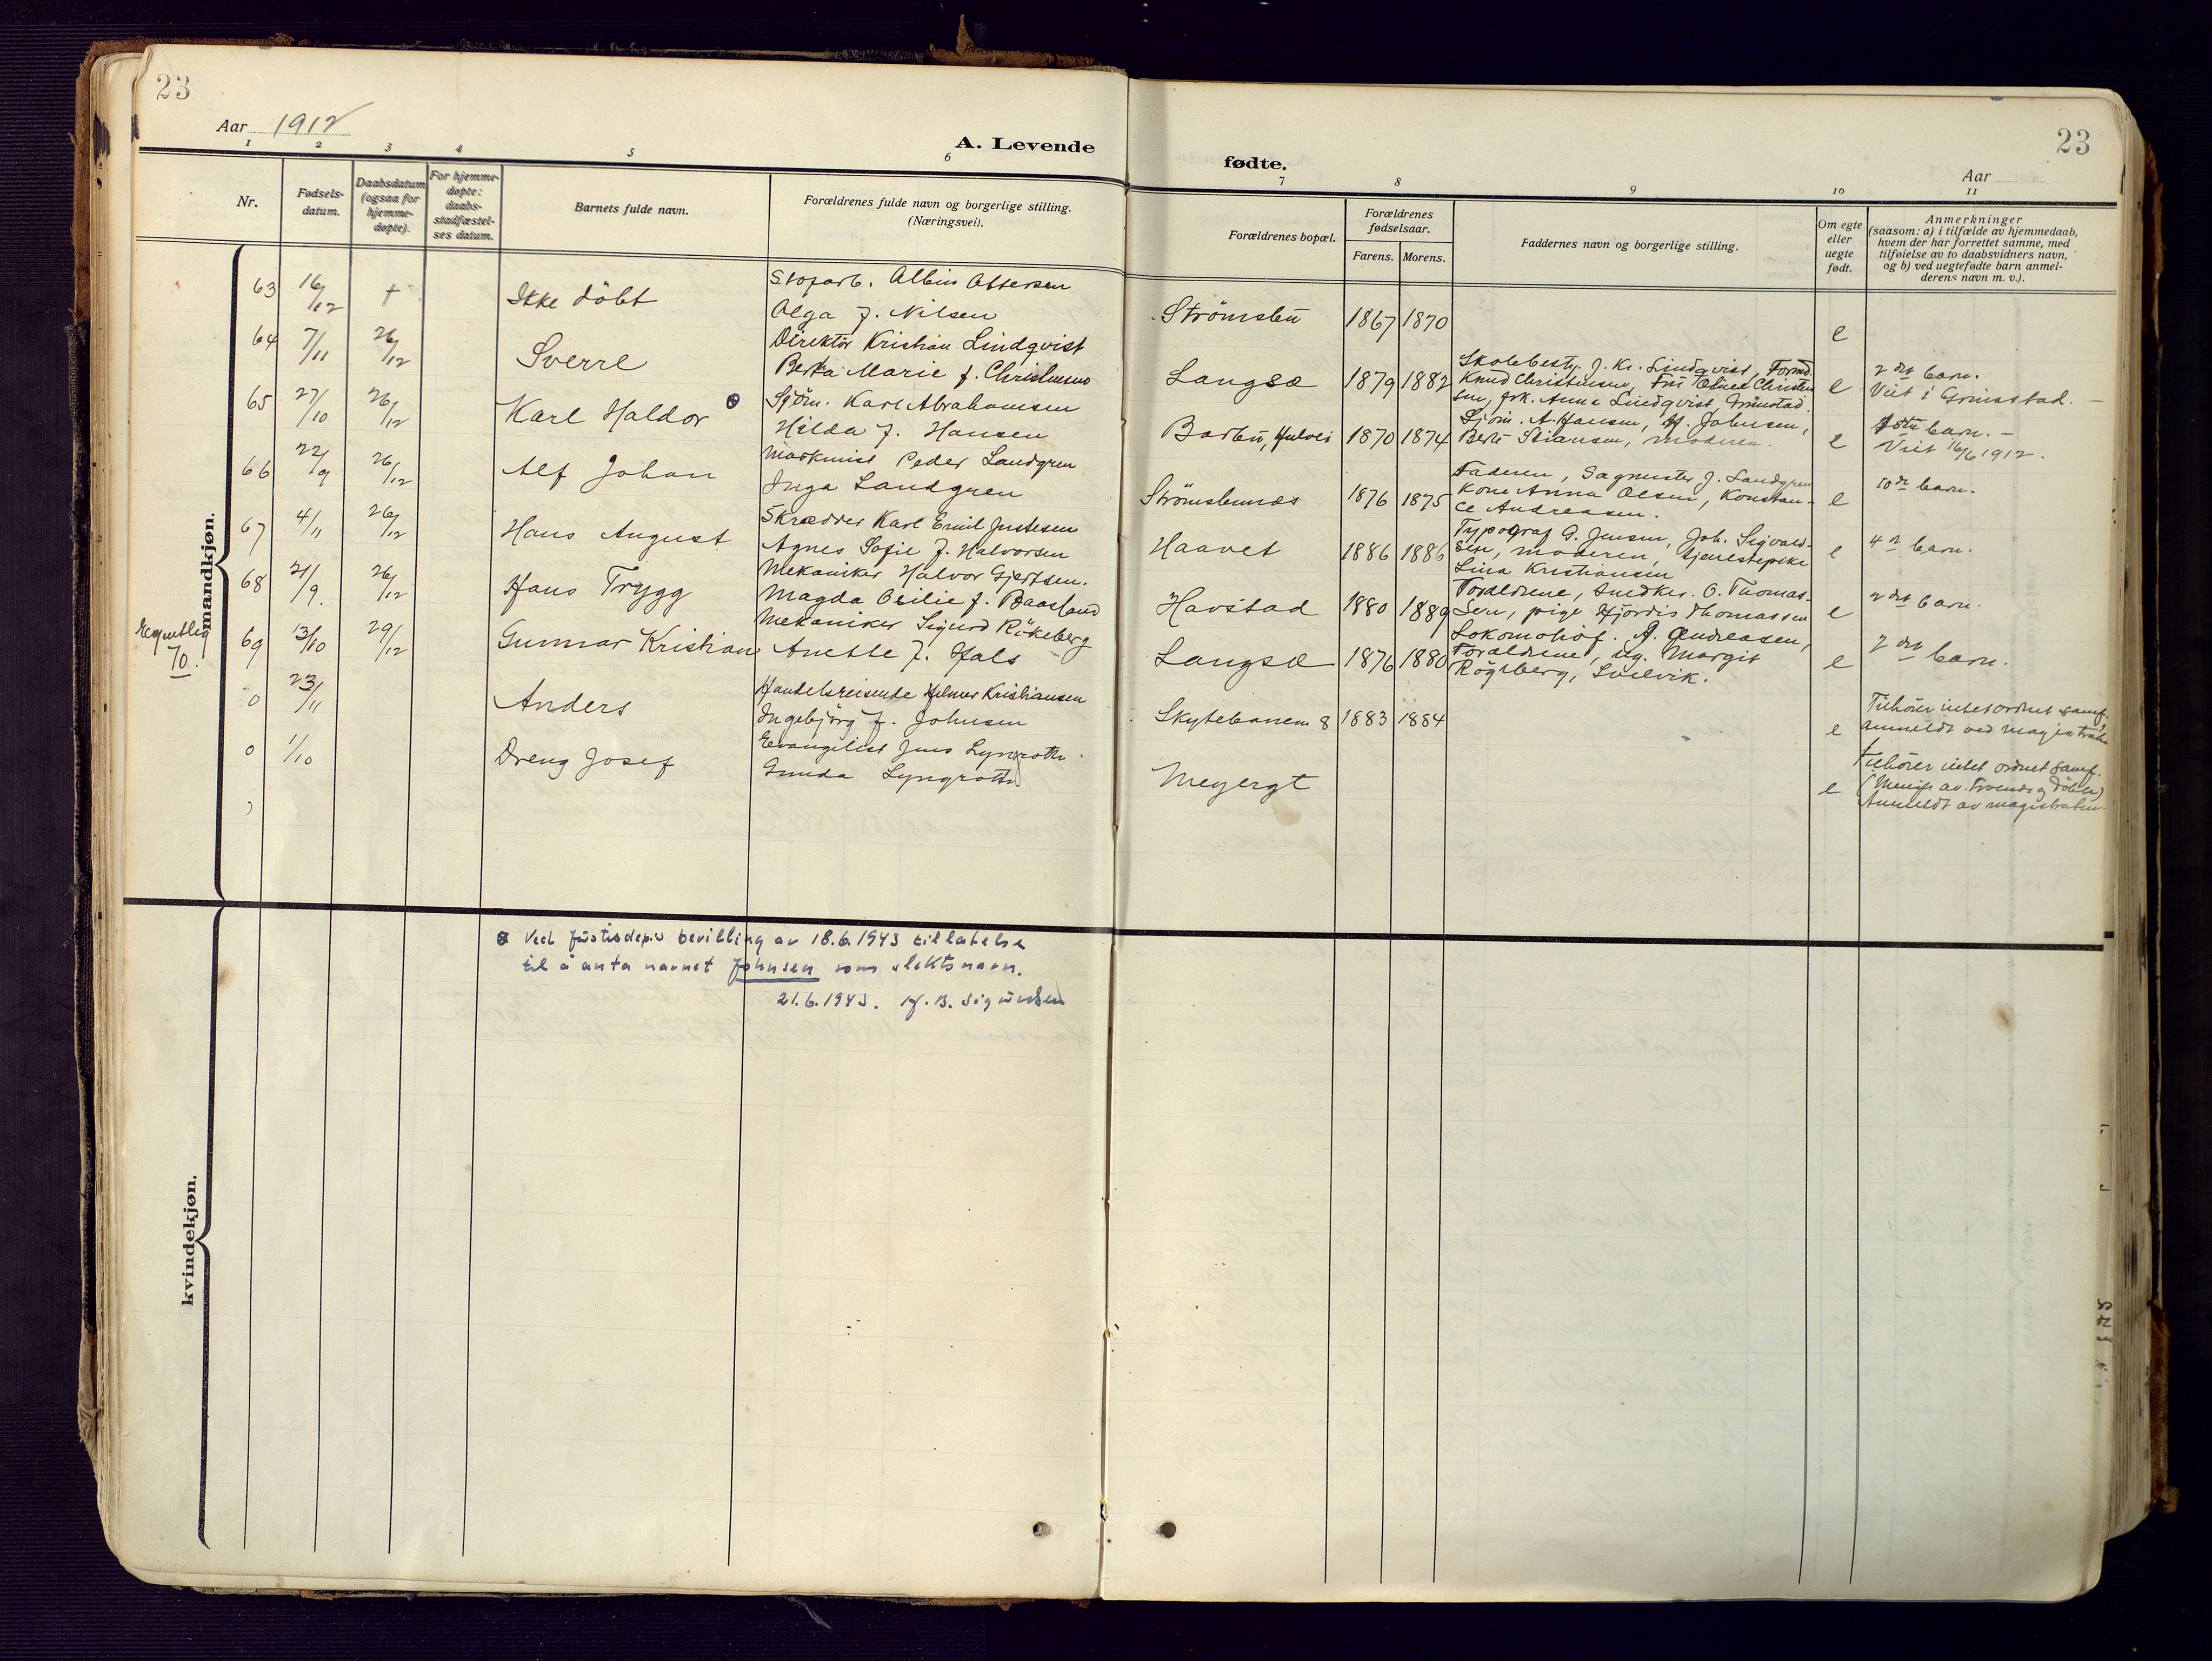 23
Aar 1912
A. Levende
fødte.
23
Aar
1 2 3 4 5 6 7 8 9 10 11
Nr.
Fødsels-
datum.
Daabsdatum
(ogsaa for
hjemme-
døpte).
For hjemme-
døpte:
daabs-
stadfæstel-
ses datum.
Barnets fulde navn.
Forældrenes fulde navn og borgerlige stilling.
(Næringsvei).
Forældrenes bopæl.
Forældrenes
fødselsaar.
Farens. Morens.
Faddernes navn og borgerlige stilling.
Om egte
eller
uegte
født.
Anmerkninger
(saasom: a) i tilfælde av hjemmedaab,
hvem der har forrettet samme, med
tilføielse av to daabsvidners navn,
og b) ved uegtefødte barn anmel-
derens navn m. v.).
mandkjøn.
63 16/12 + Ikke döbt
Albin Attersen
Olga f. Nilsen
Strömsbu 1867 1870 e
64 7/11 26/12 Sverre
Direktör Kristian Lindqvist
Berta Marie f. Christensen
Langsæ 1879 1882
Skolebesty. J. Kr. Lindqvist, Formd.
Knud Christensen, Fru Christen
sen, frk. Anna Lindqvist, Grimstad.
e
2det barn.
Viet i Grimstad. –
65 27/10 26/12 Karl Haldor
Sjöm. Karl Abrahamsen
Hilda f. Hansen
Barbu, 1870 1874
Sjöm. A. Hansen, H. Johnsen,
Moderen.
e
barn. –
Viet 16/6 1912.
66 22/9 26/12 Alf Johan
Maskinist Peder Landgren
Inga Landgren
Strömsbunes 1876 1875
Faderen, Sagmester J. Landgren
Kone Anna Olsen, Konstan-
ce Andreasen.
e
10de barn.
67 4/11 26/12 Hans August
Skrædder Karl Emil Justesen
Agnes Sofie f. Halvorsen
Haavet 1886 1886
Typograf G. Jensen, Joh. Sigvald-
sen, moderen, tjenestepike
Lina Kristiansen
e
4de barn.
68 21/9. 26/12 Hans Trygg
Mekaniker Halvor Gjertsen.
Magda Otilie f. Baasland
Havstad 1880 1889
Foraldrene, Snedker. O. Thomas-
sen, pige Hjördis Thomassen
e
2det barn.
Egentlig
70.
69 13/10 29/12 Gunnar Kristian
Mekaniker Sigurd Rökeberg
Anette f. Hals
Langsæ 1876 1880
Lokomotivf. A. Andreasen,
Foraldrene, ug. Margit
Rögeberg, Svelvik.
e
2det barn.
0 23/11 Anders
Handelsreisende Hilmer Kristiansen
Ingebjörg f. Johnsen
Skytebanem 8 1883 1884 e
Tilhörer intet ordnet samf.
anmeldt ved
0 1/10 Dreng Josef
Evangelist Jens Lyngroth
Gunda Lyngroth
Meyergt e
Tilhörer intet ordnet samf.
Anmeldt av magistraten.
Ved Justisdep.s bevilling av 18.6.1943 tillatelse
til å anta navnet Johnsen som slektsnavn.
21.6.1943. B. Sigurdsen
kvindekjøn.